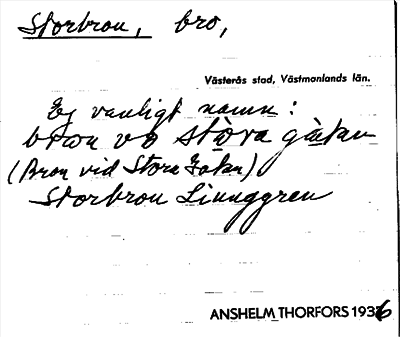 Storbron, bro,
Västerås stad, Västmanlands län.
Ej vanligt namn:
bron vo stòra gàtan
(Bron vid Stora Gatan)
Storbron Linnggren
ANSHELM THORFORS 1936